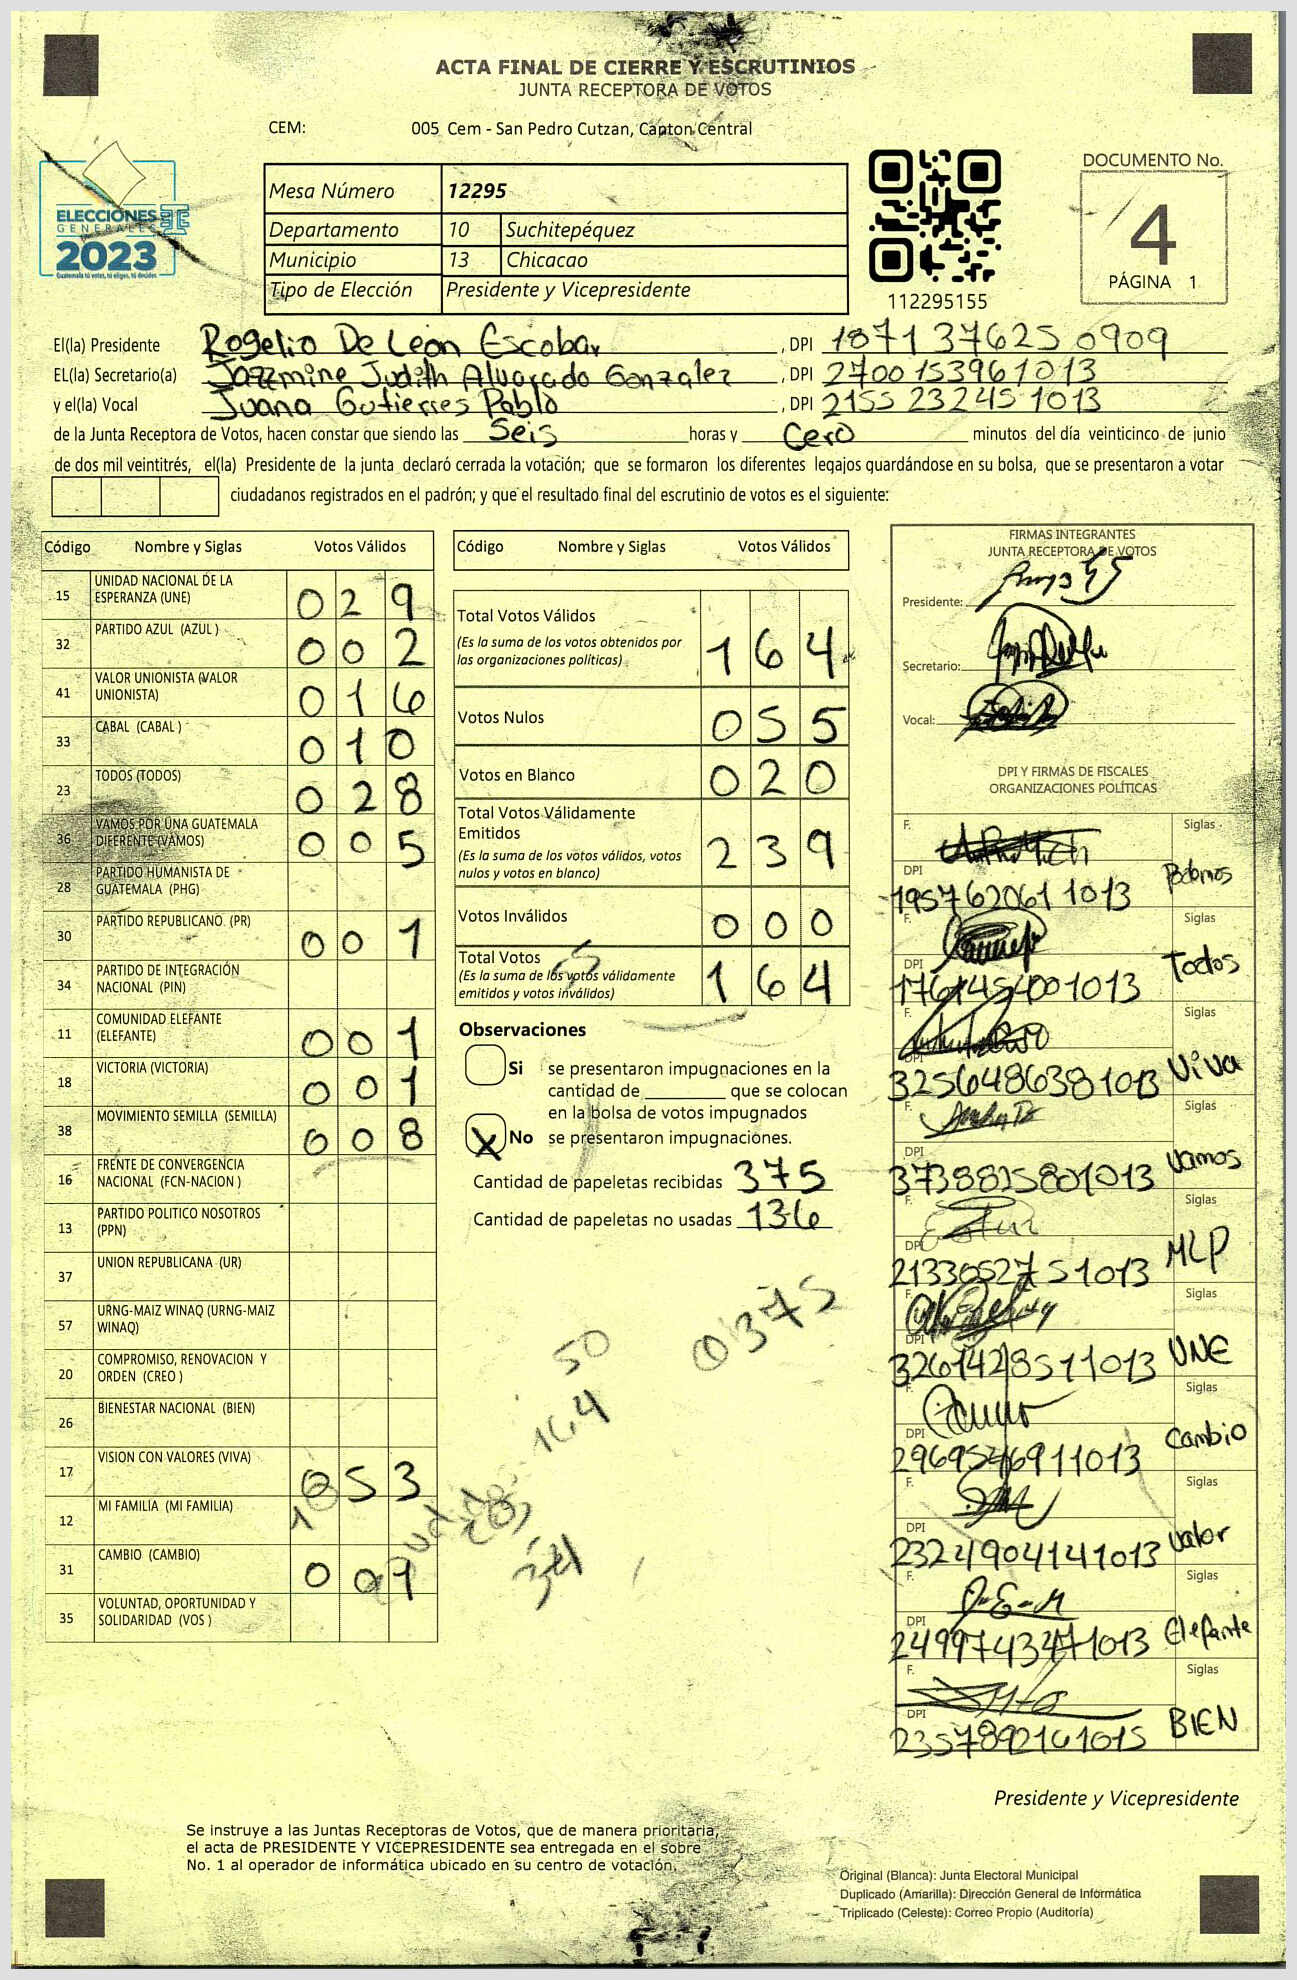 ACTA FINAL DE CIERRE Y ESCRUTINIOS
JUNTA RECEPTORA DE VOTOS
CEM: 005 Cem - San Pedro Cutzan, Canton Central
ELECCIONES
GENERALES
2023
Guatemala tú votas, tú eliges, tú decides
Mesa Número 12295
Departamento 10 Suchitepéquez
Municipio 13 Chicacao
Tipo de Elección Presidente y Vicepresidente
112295155
DOCUMENTO No.
4
PÁGINA 1
El(la) Presidente Rogelio De León Escobar , DPI 1871 37625 0909
EL(la) Secretario(a) Jazzmine Judith Alvarado Gonzalez , DPI 2700153961013
y el(la) Vocal Juana Gutierres Pablo , DPI 2155 23245 1013
de la Junta Receptora de Votos, hacen constar que siendo las Seis horas y Cero minutos del día veinticinco de junio
de dos mil veintitrés, el(la) Presidente de la junta declaró cerrada la votación; que se formaron los diferentes legajos guardándose en su bolsa, que se presentaron a votar
ciudadanos registrados en el padrón; y que el resultado final del escrutinio de votos es el siguiente:
Código Nombre y Siglas Votos Válidos
15 UNIDAD NACIONAL DE LA ESPERANZA (UNE) 029
32 PARTIDO AZUL (AZUL ) 002
41 VALOR UNIONISTA (VALOR UNIONISTA) 016
33 CABAL (CABAL ) 010
23 TODOS (TODOS) 028
36 VAMOS POR UNA GUATEMALA DIFERENTE (VAMOS) 005
28 PARTIDO HUMANISTA DE GUATEMALA (PHG)
30 PARTIDO REPUBLICANO (PR) 001
34 PARTIDO DE INTEGRACIÓN NACIONAL (PIN)
11 COMUNIDAD ELEFANTE (ELEFANTE) 001
18 VICTORIA (VICTORIA) 001
38 MOVIMIENTO SEMILLA (SEMILLA) 008
16 FRENTE DE CONVERGENCIA NACIONAL (FCN-NACION )
13 PARTIDO POLITICO NOSOTROS (PPN)
37 UNION REPUBLICANA (UR)
57 URNG-MAIZ WINAQ (URNG-MAIZ WINAQ)
20 COMPROMISO, RENOVACION Y ORDEN (CREO )
26 BIENESTAR NACIONAL (BIEN)
17 VISION CON VALORES (VIVA) 053
12 MI FAMILIA (MI FAMILIA)
31 CAMBIO (CAMBIO)
35 VOLUNTAD, OPORTUNIDAD Y SOLIDARIDAD (VOS )
Código Nombre y Siglas Votos Válidos
Total Votos Válidos 164
(Es la suma de los votos obtenidos por
las organizaciones políticas)
Votos Nulos 055
Votos en Blanco 020
Total Votos Válidamente
Emitidos 239
(Es la suma de los votos válidos, votos
nulos y votos en blanco)
Votos Inválidos 000
Total Votos 164
(Es la suma de los votos válidamente
emitidos y votos inválidos)
Observaciones
Si se presentaron impugnaciones en la
cantidad de ________ que se colocan
en la bolsa de votos impugnados
X No se presentaron impugnaciones.
Cantidad de papeletas recibidas 375
Cantidad de papeletas no usadas 136
0375
50
164
FIRMAS INTEGRANTES
JUNTA RECEPTORA DE VOTOS
Presidente:
Secretario:
Vocal:
DPI Y FIRMAS DE FISCALES
ORGANIZACIONES POLÍTICAS
F. Siglas
DPI 195762061 1013 Podemos
F. Siglas
DPI 1761454001013 Todos
F. Siglas
DPI 3256486381013 Viva
F. Siglas
DPI 3738825801013 Vamos
F. Siglas
DPI 2133052751013 MLP
F. Siglas
DPI 3261428511013 UNE
F. Siglas
DPI 2969526911013 Cambio
F. Siglas
DPI 2324904141013 Valor
F. Siglas
DPI 2499743271013 Elefante
F. Siglas
DPI 2357892161015 BIEN
Presidente y Vicepresidente
Se instruye a las Juntas Receptoras de Votos, que de manera prioritaria,
el acta de PRESIDENTE Y VICEPRESIDENTE sea entregada en el sobre
No. 1 al operador de informática ubicado en su centro de votación.
Original (Blanca): Junta Electoral Municipal
Duplicado (Amarilla): Dirección General de Informática
Triplicado (Celeste): Correo Propio (Auditoría)